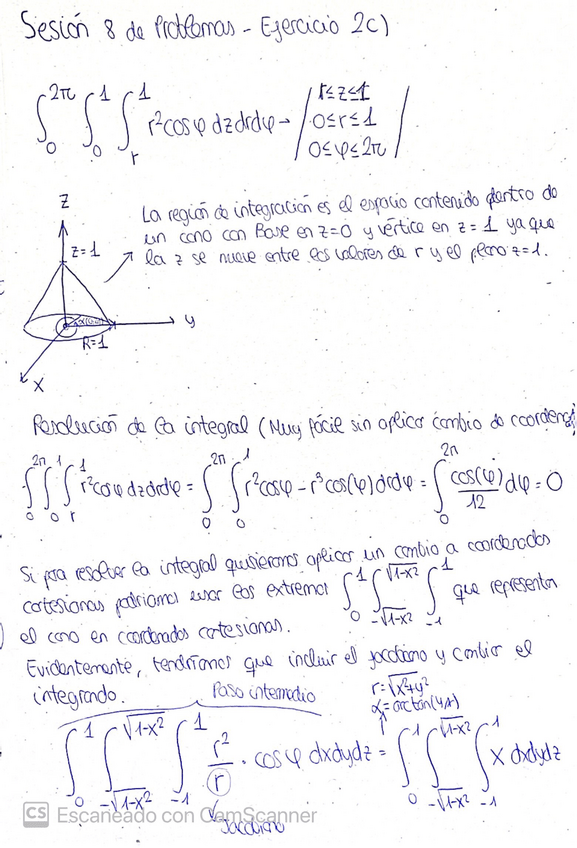 Sesión 8 de Problemas - Ejercicio 2c)
∫₀^2π ∫₀^1 ∫_r^1 r²cosφ dzdrdφ → | r≤z≤1
0≤r≤1
0≤φ≤2π |
Z
z=1
y
R=1
X
La región de integración es el espacio contenido dentro de
un cono con Base en z=0 y vértice en z=1 ya que
la z se mueve entre los valores de r y el plano z=1.
Resolución de la integral (Muy fácil sin aplicar cambio de coordenadas)
∫₀^2π ∫₀^1 ∫_r^1 r²cosφ dzdrdφ = ∫₀^2π ∫₀^1 r²cosφ - r³cos(φ) drdφ = ∫₀^2π cos(φ)/12 dφ = 0
Si para resolver la integral quisieramos aplicar un cambio a coordenadas
cartesianas podríamos usar los extremos ∫₀^1 ∫_-√1-x²^√1-x² ∫_-1^1 que representan
el cono en coordenadas cartesianas.
Evidentemente, tendríamos que incluir el jacobiano y cambiar el
integrando.
Paso intermedio
r=√x²+y²
α=arctan(y/x)
∫₀^1 ∫_-√1-x²^√1-x² ∫_-1^1 r²/r · cosφ dxdydz = ∫₀^1 ∫_-√1-x²^√1-x² ∫_-1^1 x dxdydz
Jacobiano
CS Escaneado con CamScanner